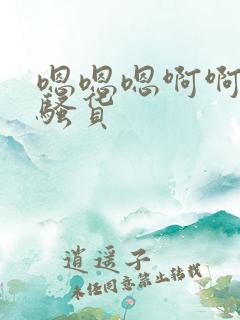 嗯嗯嗯啊啊
骚货
逍遥子
未经同意禁止转载